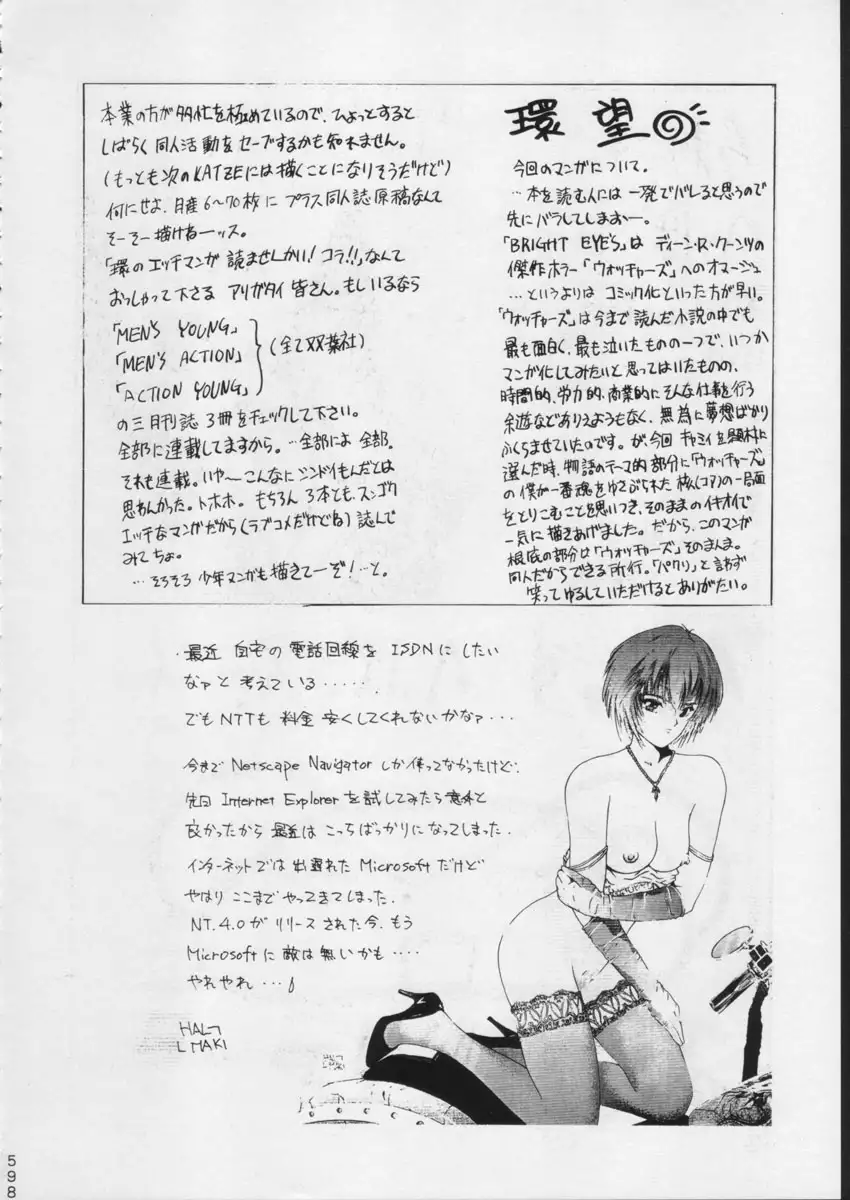 環望
今回のマンガについて。
…本を読む人には一発でバレると思うので
先にバラしてしまおー。
「BRIGHT EYE'S」は ディーン・R・クーンツの
傑作ホラー「ウォッチャーズ」へのオマージュ
…というよりは コミック化といった方が早い。
「ウォッチャーズ」は今まで読んだ小説の中でも
最も面白く、最も泣いたものの一つで、いつか
マンガ化してみたいと思ってはいたものの、
時間的、労力的、商業的にそんな仕事を行う
余遊などありえようもなく、無為に夢想ばかり
ふくらませていたのです。が、今回 キャミィを題材に
選んだ時、物語のテーマ的部分に「ウォッチャーズ」
の僕が一番魂をゆさぶられた核(コア)の一局面
をとりこむことを思いつき、そのままのイキオイで
一気に描きあげました。だから、このマンガ
根底の部分は「ウォッチャーズ」そのまんま。
同人だからできる所行。「パクリ」と言わず
笑ってゆるしていただけるとありがたい。
本業の方が多忙を極めているので、ひょっとすると
しばらく同人活動をセーブするかも知れません。
(もっとも次のKATZEには描くことになりそうだけど)
何にせよ、月産6〜70枚に プラス同人誌原稿なんて
そーそー描けねーッス。
「環のエッチマンガが読ませんかい！コラ!!」なんて
おっしゃって下さる アリガタイ皆さん。もしいるなら
「MEN'S YOUNG」
「MEN'S ACTION」
「ACTION YOUNG」
(全て双葉社)
の三月刊誌 3冊をチェックして下さい。
全部に連載してますから。…全部によ 全部。
それも連載。いや〜こんなにシンドイもんだとは
思わんかった。トホホ。もちろん 3本とも、スンゴク
エッチなマンガだから(ラブコメだけどね)読んで
みてちょ。
…そろそろ 少年マンガも描きてーぞ！…と。
・最近 自宅の 電話回線を ISDNに したい
なァと 考えている・・・・・
でも NTTも 料金 安くしてくれないかなァ・・・
今まで Netscape Navigator しか使ってなかったけど、
先日 Internet Explorer を試してみたら 意外と
良かったから 最近は こっちばっかりになってしまった.
インターネットでは 出遅れた Microsoft だけど
やはり ここまで やってきてしまった.
NT.4.0が リリース された今、もう
Microsoftに 敵は無いかも・・・・
やれやれ・・・
598